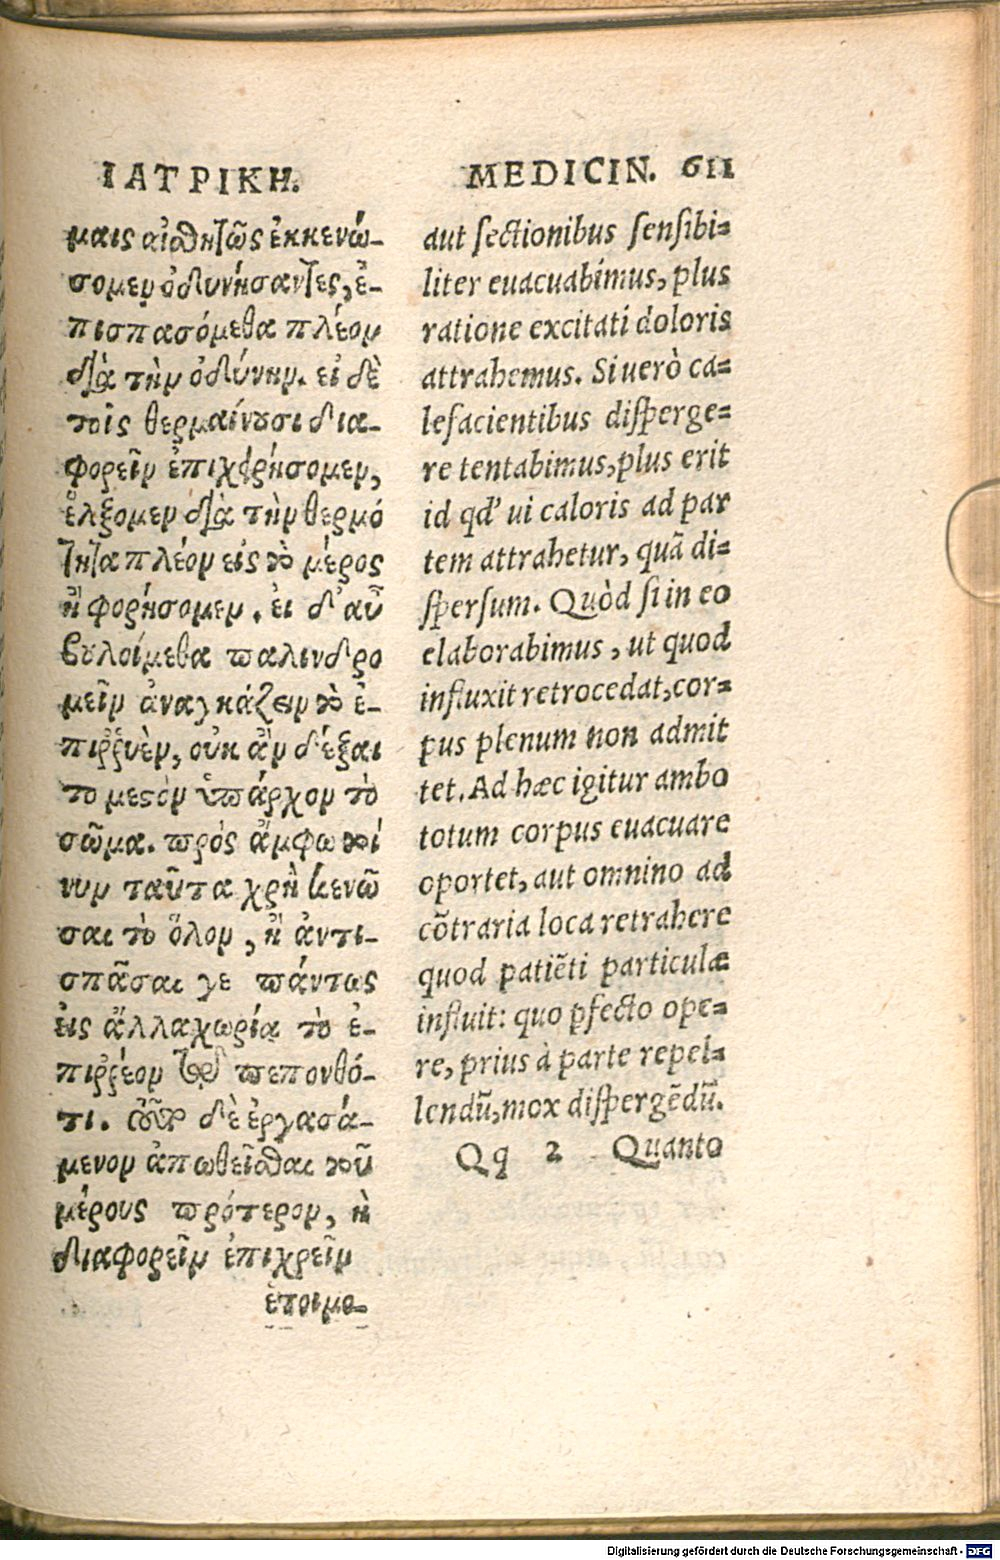 ΙΑΤΡΙΚΗ.
μαις αἰσθητῶς ἐκκενώ-
σομεν ὀδυνήσαντες, ἐ-
πισπασόμεθα πλέον
διὰ τὴν ὀδύνην. εἰ δὲ
τοῖς θερμαίνουσι δια-
φορεῖν ἐπιχειρήσομεν,
ἕλξομεν διὰ τὴν θερμό
τητα πλέον εἰς τὸ μέρος
ἢ φορήσομεν. εἰ δ' αὖ
βουλοίμεθα παλινδρο
μεῖν ἀναγκάζειν τὸ ἐ-
πιῤῥυὲν, οὐκ ἂν δέξαι
το μεστὸν ὑπάρχον τὸ
σῶμα. πρὸς ἄμφω τοί
νυν ταῦτα χρὴ κενῶ
σαι τὸ ὅλον, ἢ ἀντι-
σπᾶσαι γε πάντως
εἰς ἄλλα χωρία τὸ ἐ-
πιῤῥέον τῷ πεπονθό-
τι. οὕτω δὲ ἐργασά-
μενον ἀπωθεῖσθαι τοῦ
μέρους πρότερον, ἢ
διαφορεῖν ἐπιχρεῖν
ἑτοιμο-
MEDICIN. 611
aut sectionibus sensibi-
liter euacuabimus, plus
ratione excitati doloris
attrahemus. Si uerò ca-
lefacientibus disperge-
re tentabimus, plus erit
id qd' ui caloris ad par
tem attrahetur, quã di-
spersum. Quòd si in eo
elaborabimus, ut quod
influxit retrocedat, cor-
pus plenum non admit
tet. Ad hæc igitur ambo
totum corpus euacuare
oportet, aut omnino ad
cõtraria loca retrahere
quod patiẽti particulæ
influit: quo pfecto ope-
re, prius à parte repel-
lendũ, mox dispergẽdũ.
Qq 2 Quanto
Digitalisierung gefördert durch die Deutsche Forschungsgemeinschaft - DFG